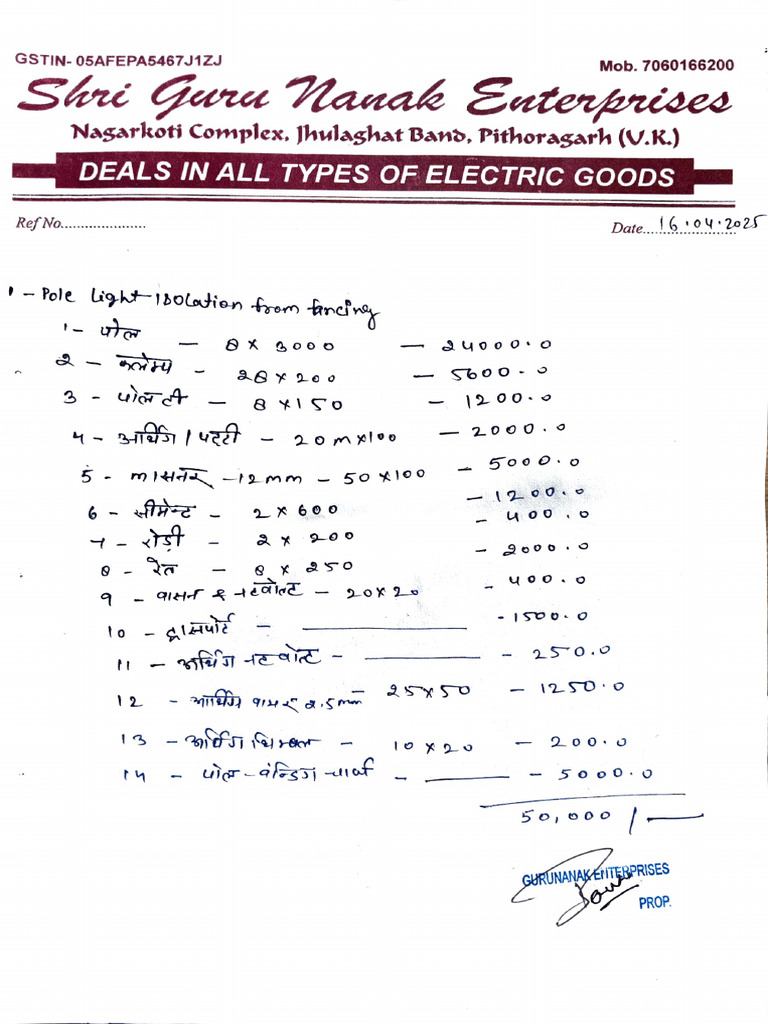 GSTIN- 05AFEPA5467J1ZJ
Mob. 7060166200
Shri Guru Nanak Enterprises
Nagarkoti Complex, Jhulaghat Band, Pithoragarh (U.K.)
DEALS IN ALL TYPES OF ELECTRIC GOODS
Ref No.....................
Date....16.04.2025
1 - Pole Light Isolation from fancing
1 - पोल - 8 x 3000 - 24000.0
2 - क्लेम्प - 28 x 200 - 5600.0
3 - पोल टी - 8 x 150 - 1200.0
4 - अर्थिंग / पट्टी - 20m x 100 - 2000.0
5 - - 12mm - 50 x 100 - 5000.0
6 - सीमेन्ट - 2 x 600 - 1200.0
7 - रोड़ी - 2 x 200 - 400.0
8 - रेत - 8 x 250 - 2000.0
9 - वासर & नटवोल्ट - 20 x 20 - 400.0
10 - ट्रासपोर्ट - - 1500.0
11 - अर्थिंग नट वोल्ट - - 250.0
12 - अर्थिंग वायर 2.5mm - 25 x 50 - 1250.0
13 - अर्थिंग थिम्बल - 10 x 20 - 200.0
14 - पोल - वेन्डिग चार्ज - - 5000.0
50,000 /-
GURUNANAK ENTERPRISES
PROP.